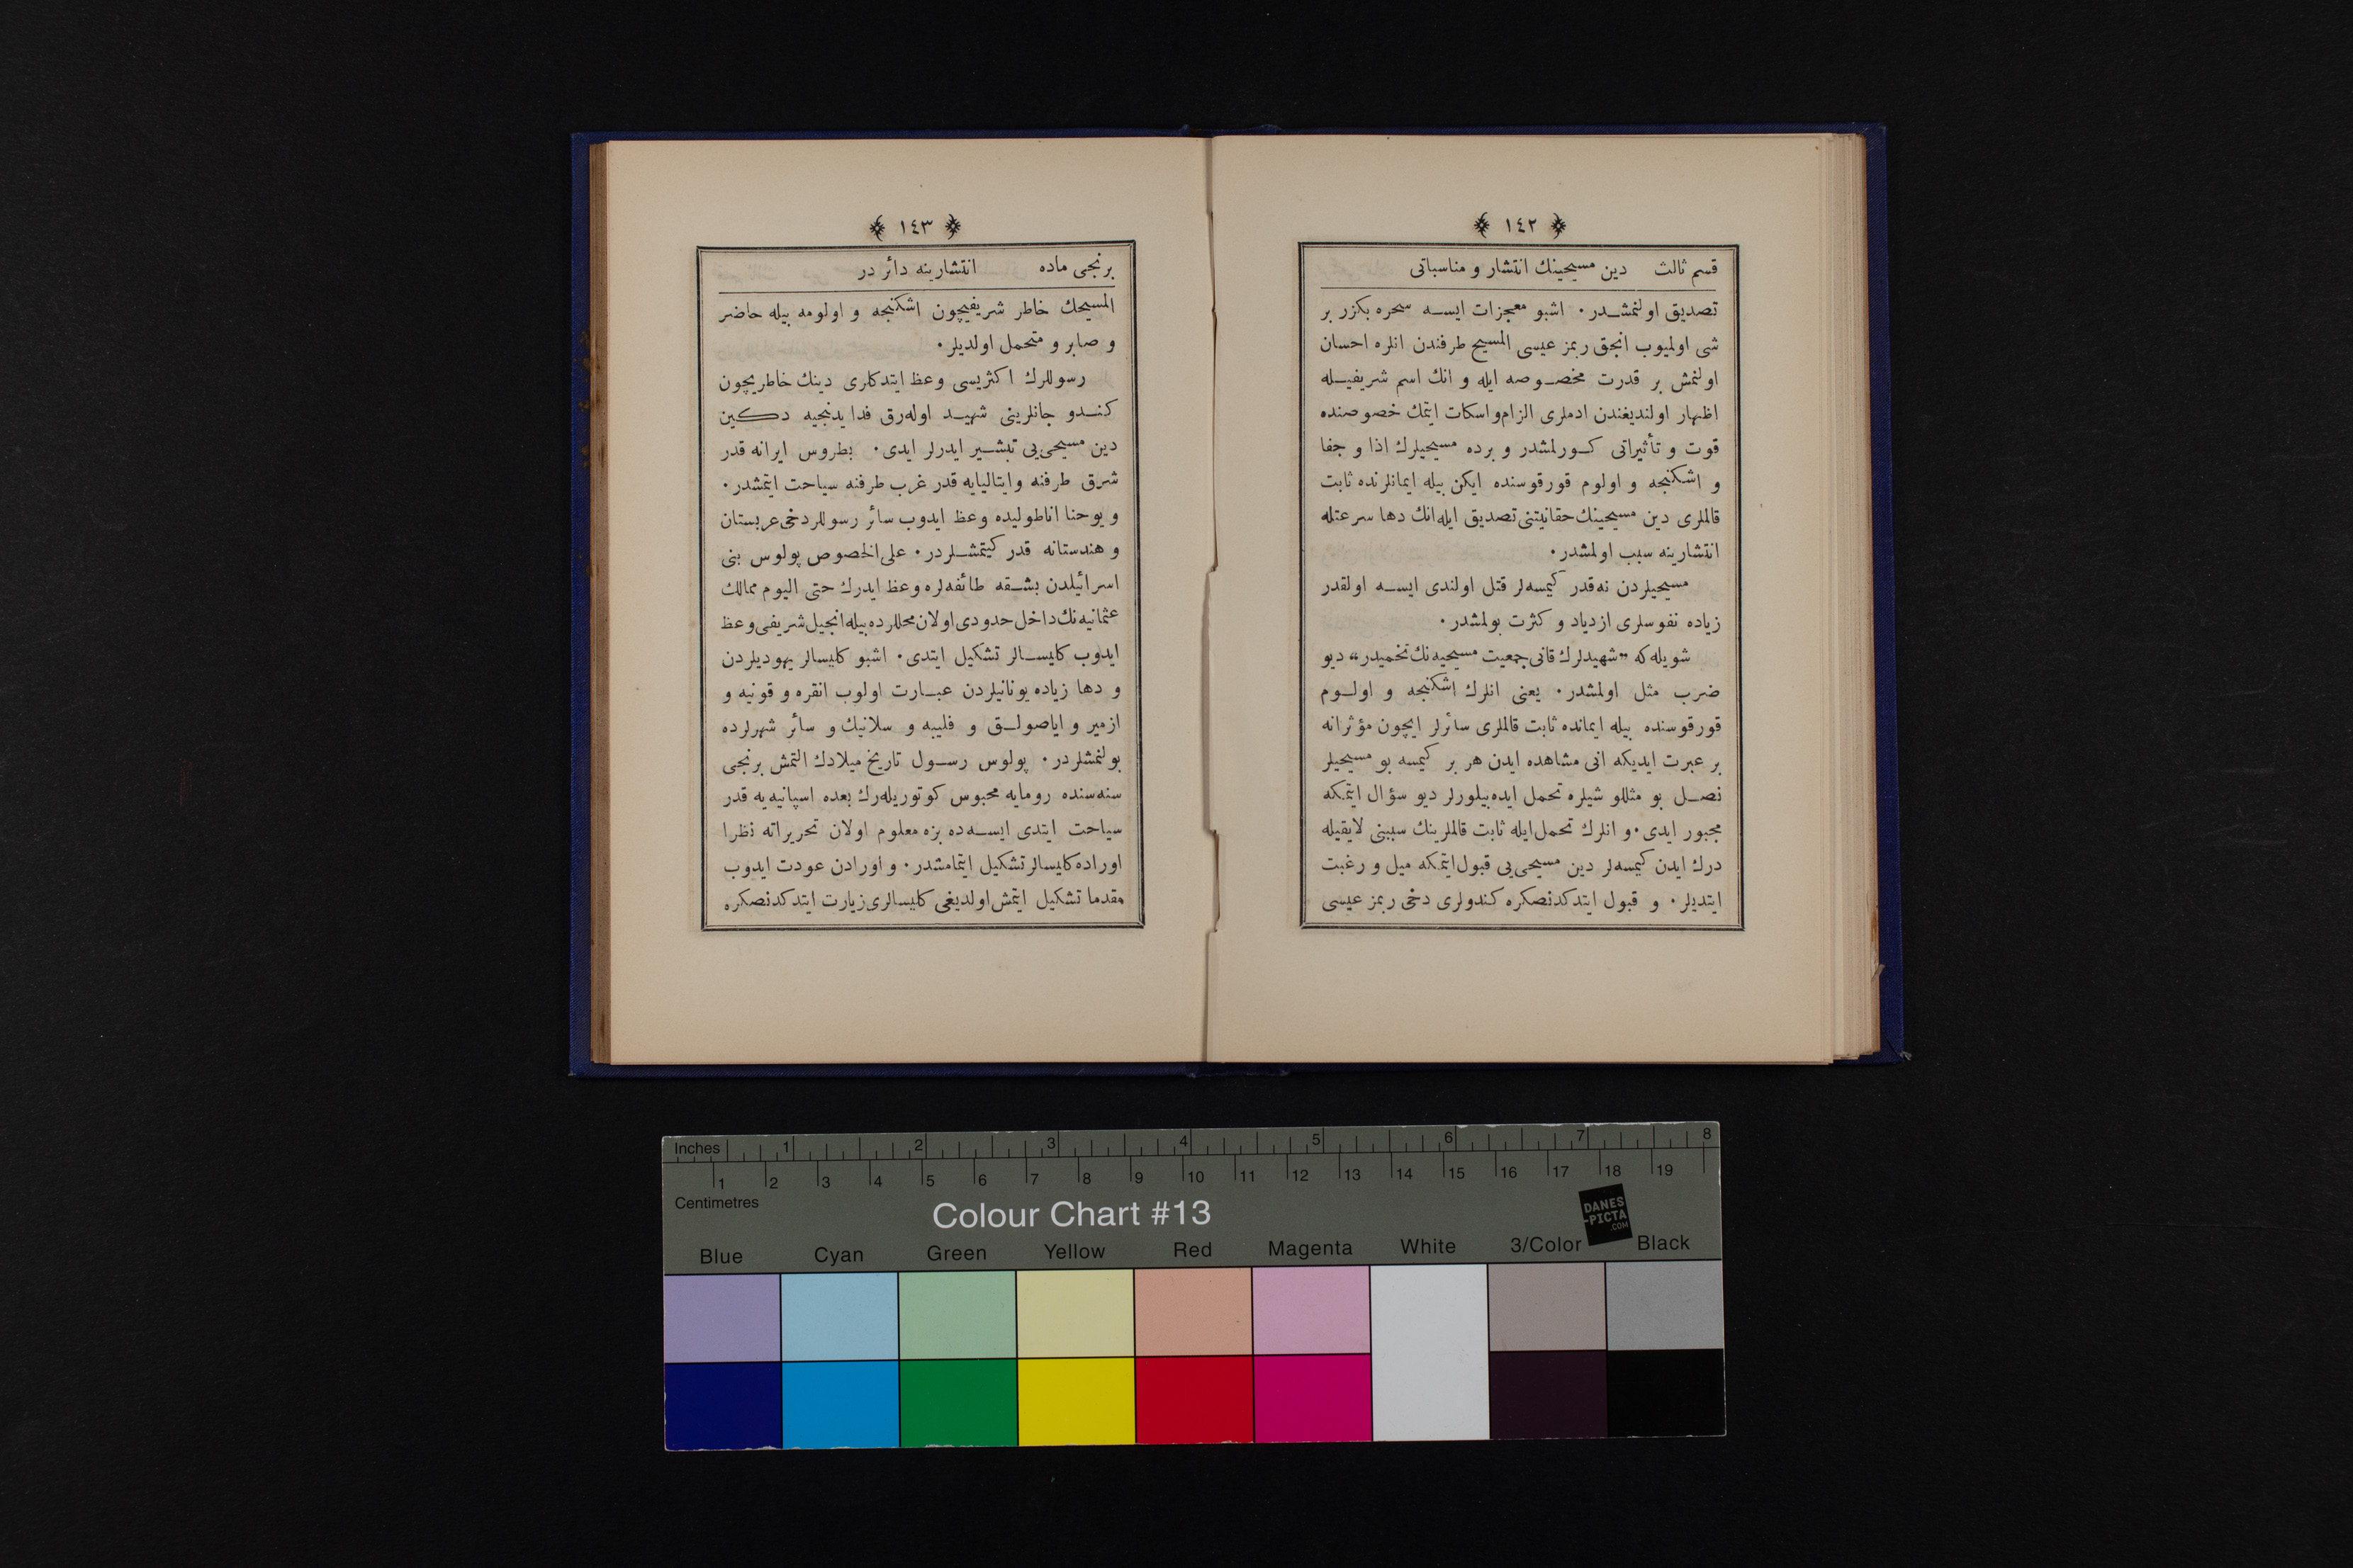 ١٤٢
قسم ثالث دين مسيحينك انتشار و مناسباتى
تصديق اولنمشـدر. اشبو معجزات ايسـه سحره بكزر بر
شى اولميوب انجق ربمز عيسى المسيح طرفندن انلره احسان
اولنمش بر قدرت مخصـوصه ايله و انك اسم شريفيـله
اظهار اولنديغندن ادملرى الزام و اسكات ايتمك خصوصنده
قوت و تأثيراتى كـورلمشدر و برده مسيحيلرك اذا و جفا
و اشكنجه و اولوم قورقوسنده ايكن بيله ايمانلرنده ثابت
قالملرى دين مسيحينك حقانيتنى تصديق ايله انك دها سرعتله
انتشارينه سبب اولمشدر.
مسيحيلردن نه‌قدر كيمسه‌لر قتل اولندى ايسـه اولقدر
زياده نفوسلرى ازدياد و كثرت بولمشدر.
شويله‌كه ,,شهيدلرك قانى جمعيت مسيحيه‌نك تخميدر“ ديو
ضرب مثل اولمشدر. يعنى انلرك اشكنجه و اولـوم
قورقوسنده بيله ايمانده ثابت قالملرى سائرلر ايچون مؤثرانه
بر عبرت ايديكه انى مشاهده ايدن هر بر كيمسه بو مسيحيلر
نصـل بو مثللو شيلره تحمل ايده‌بيلورلر ديو سؤال ايتمكه
مجبور ايدى. و انلرك تحمل ايله ثابت قالملرينك سببنى لايقيله
درك ايدن كيمسه‌لر دين مسيحى‌يى قبول ايتمكه ميل و رغبت
ايتديلر. و قبول ايتدكدنصكره كندولرى دخى ربمز عيسى
١٤٣
برنجى ماده انتشارينه دائر در
المسيحك خاطر شريفيچون اشكنجه و اولومه بيله حاضر
و صابر و متحمل اولديلر.
رسوللرك اكثريسى وعظ ايتدكلرى دينك خاطريچون
كنـدو جانلرينى شهيـد اوله‌رق فدا يدنجيه دكين
دين مسيحى‌يى تبشـير ايدرلر ايدى. بطروس ايرانه قدر
شرق طرفنه و ايتاليايه قدر غرب طرفنه سياحت ايتمشدر.
و يوحنا اناطوليده وعظ ايدوب سائر رسوللر دخى عربستان
و هندستانه قدر كيتمشـلردر. على الخصوص پولوس بنى
اسرائيلدن بشـقه طائفه‌لره وعظ ايدرك حتى اليوم ممالك
عثمانيه‌نك داخل حدودى اولان محللرده بيله انجيل شريفى وعظ
ايدوب كليسـالر تشكيل ايتدى. اشبو كليسالر يهوديلردن
و دها زياده يونانيلردن عبـارت اولوب انقره و قونيه و
ازمير و اياصولـق و فليبه و سلانيك و سائر شهرلرده
بولنمشلردر. پولوس رسـول تاريخ ميلادك التمش برنجى
سنه‌سنده رومايه محبوس كوتوريله‌رك بعده اسپانيه‌يه قدر
سياحت ايتدى ايسـه‌ده بزه معلوم اولان تحريراته نظرا
اوراده كليسالر تشكيل ايتمامشدر. و اورادن عودت ايدوب
مقدما تشكيل ايتمش اولديغى كليسالرى زيارت ايتدكدنصكره
Inches 1 2 3 4 5 6 7 8
1 2 3 4 5 6 7 8 9 10 11 12 13 14 15 16 17 18 19
Centimetres
Colour Chart #13
DANES
-PICTA
.COM
Blue Cyan Green Yellow Red Magenta White 3/Color Black